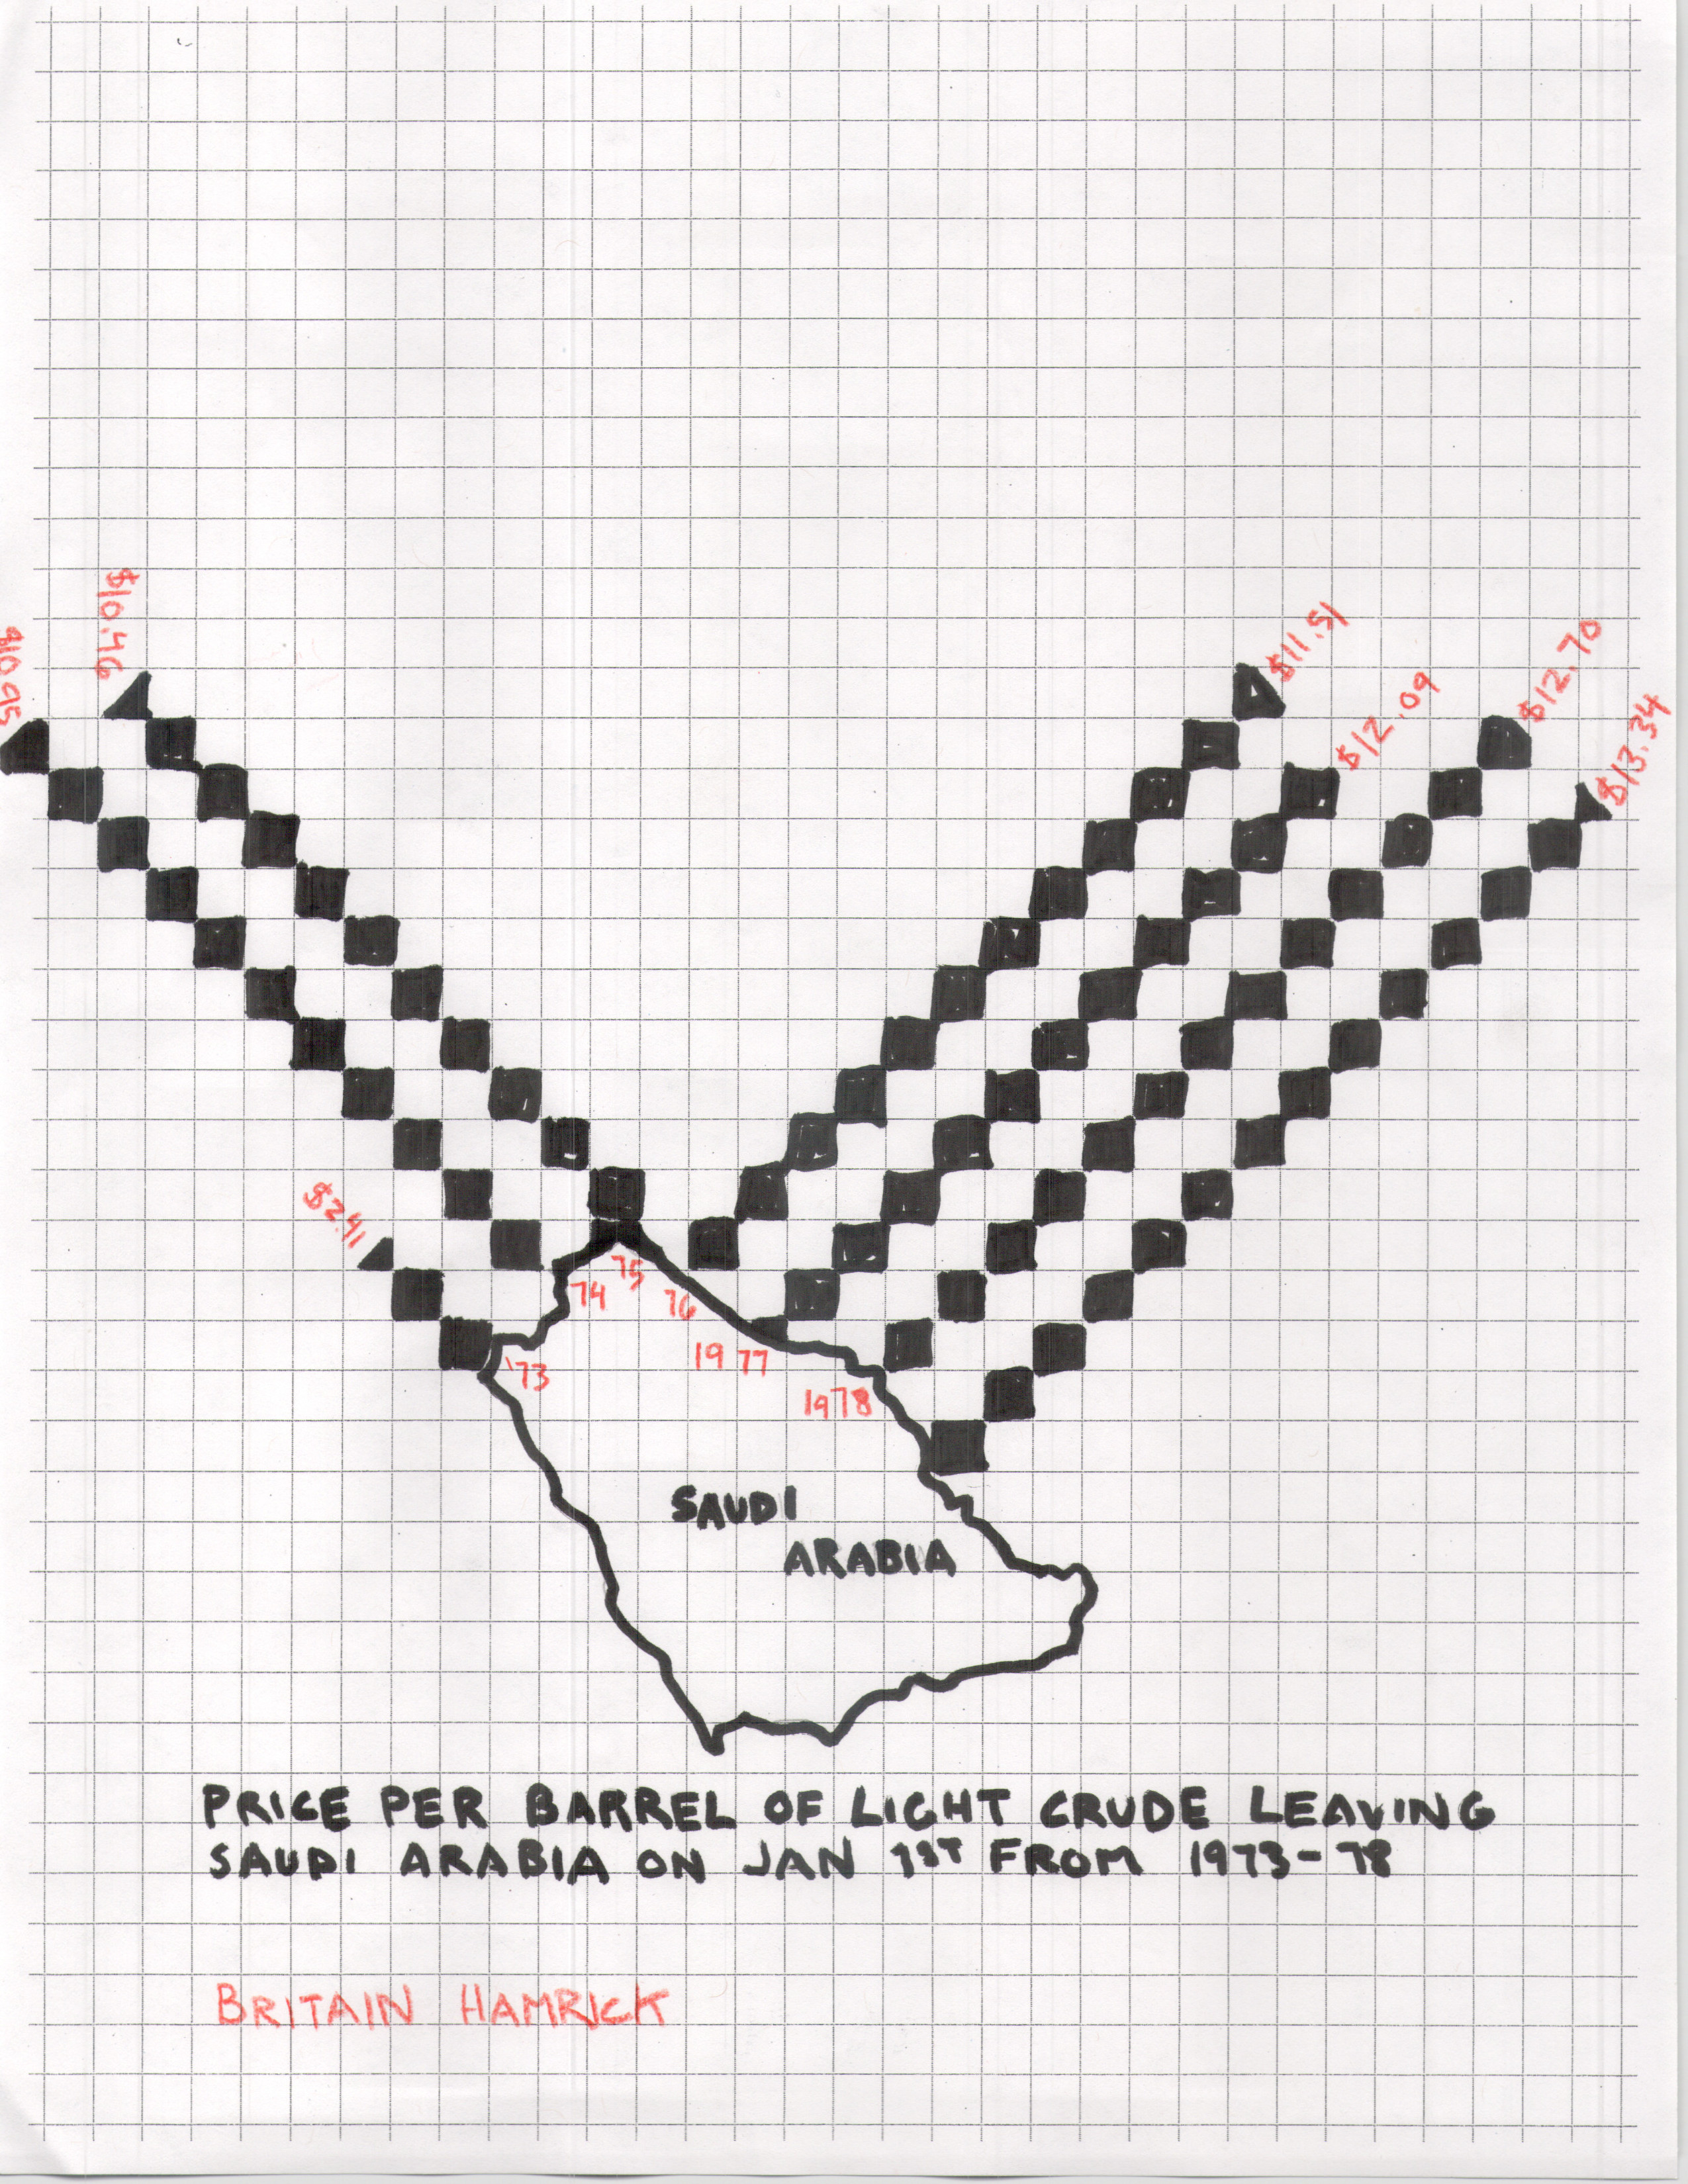 $10.46
$11.51
$12.70
$10.95
$12.09
$13.34
$2.41
75
74
76
'73
1977
1978
SAUDI
ARABIA
PRICE PER BARREL OF LIGHT CRUDE LEAVING
SAUDI ARABIA ON JAN 1ST FROM 1973-78
BRITAIN HAMRICK